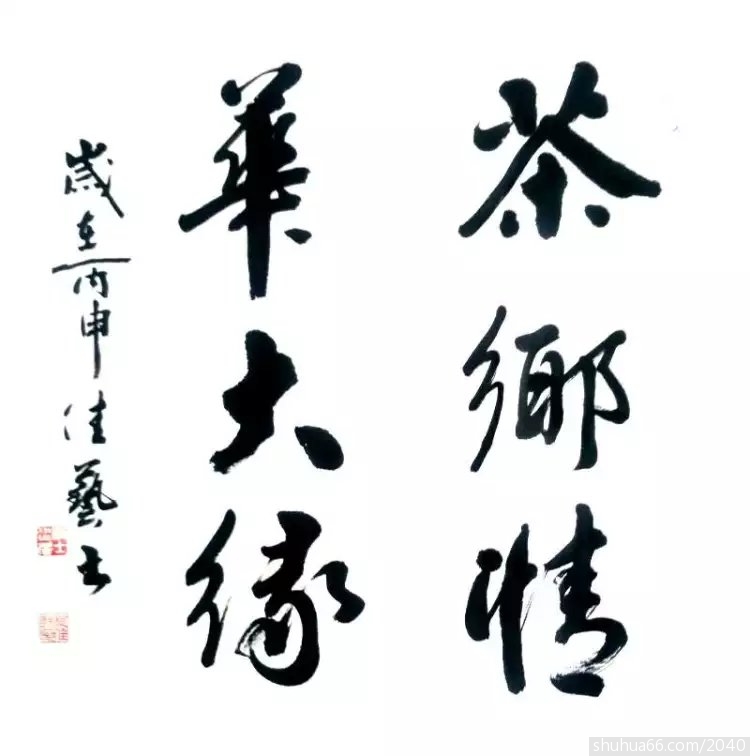 茶鄉情
華大緣
歲在丙申佳藝士
shuhua66.com/2040